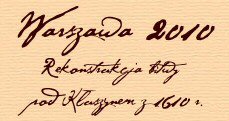 Warszawa 2010
Rekonstrukcja bitwy
pod Kłuszynem z 1610 r.